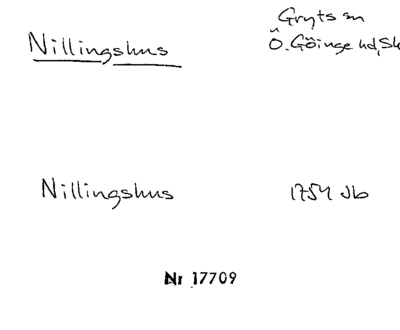 Nillingshus
Gryts sn
Ö. Göinge hd, Sk
Nillingshus 1754 Jb
Nr 17709